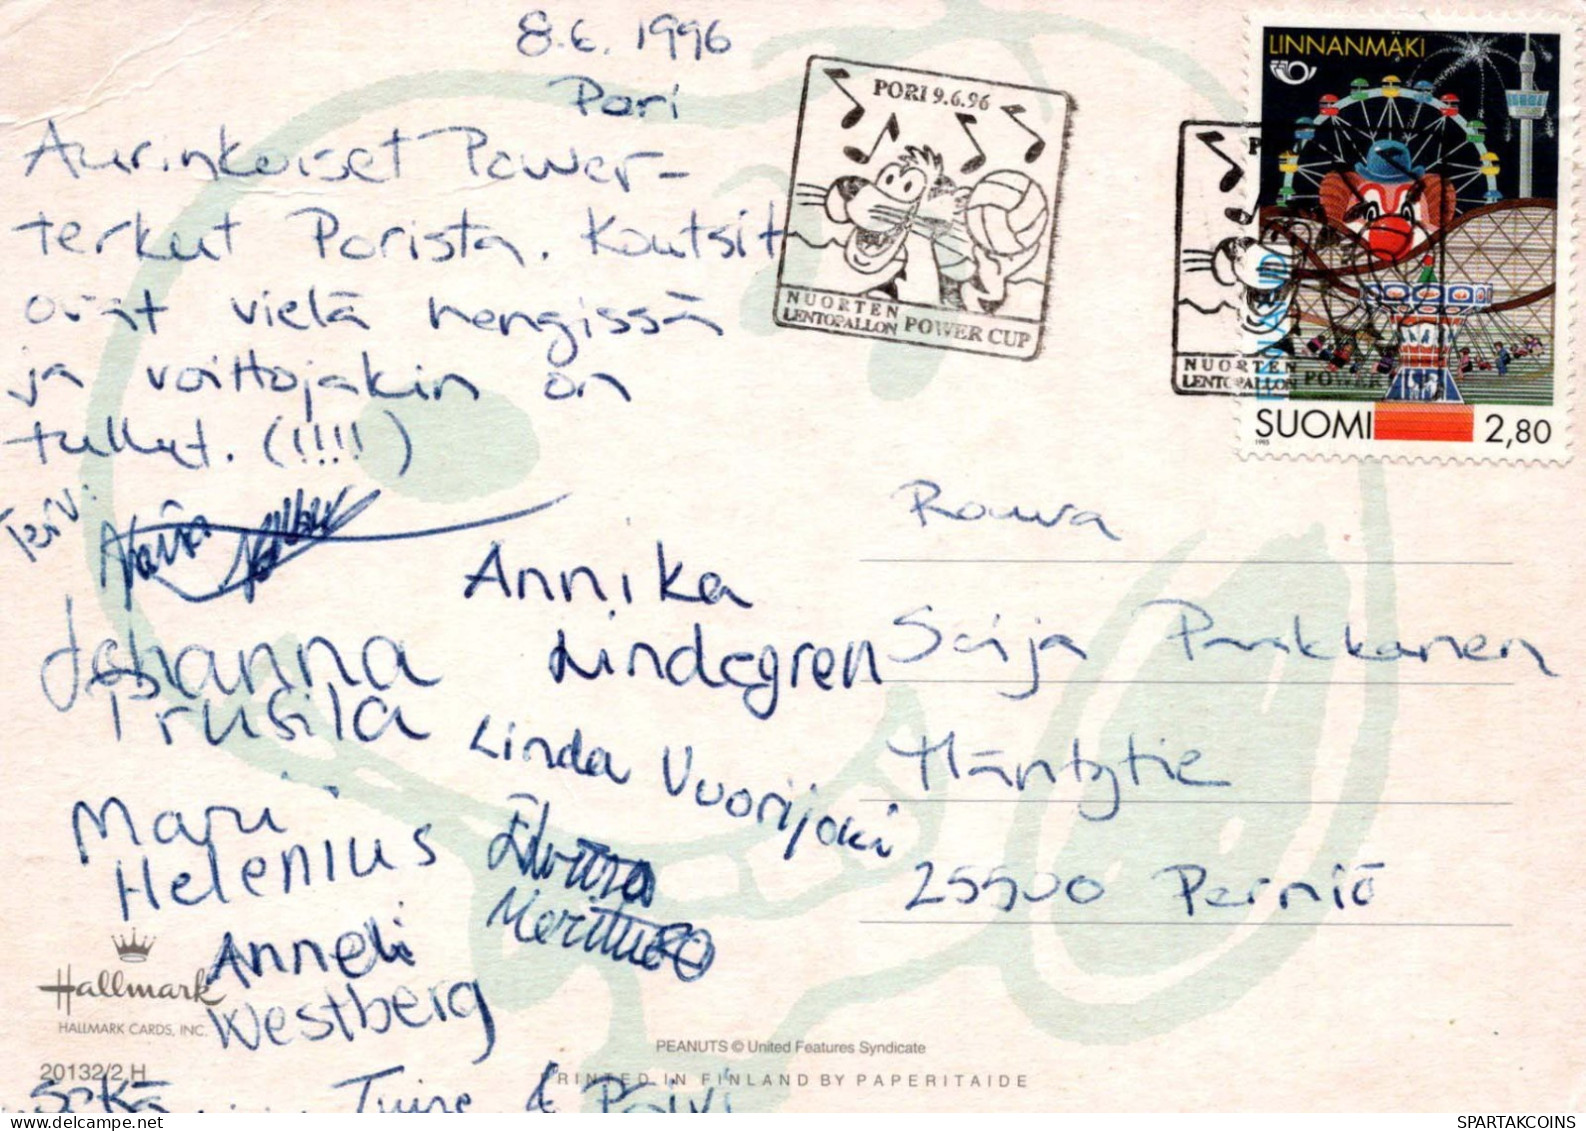 8.6.1996
Pori
Aurinkoiset Power-
terkut Porista. Koutsit
ovat vielä hengissä
ja voittojakin on
tullut. (!!!!)
Annika
Lindegren
Johanna
Prusila
Linda Vuorijoki
Mari
Helenius
Anneli
Westberg
sekä Tuire & Päivi
PORI 9.6.96
NUORTEN
LENTOPALLON POWER CUP
LINNANMÄKI
FINLAND
NUORTEN
LENTOPALLON POWER
SUOMI 2,80
1995
Rouva
Seija Punkkanen
Mäntytie
25500 Perniö
Hallmark
HALLMARK CARDS, INC.
20132/2 H
PEANUTS © United Features Syndicate
PRINTED IN FINLAND BY PAPERITAIDE
SPARTAKCOINS.COM